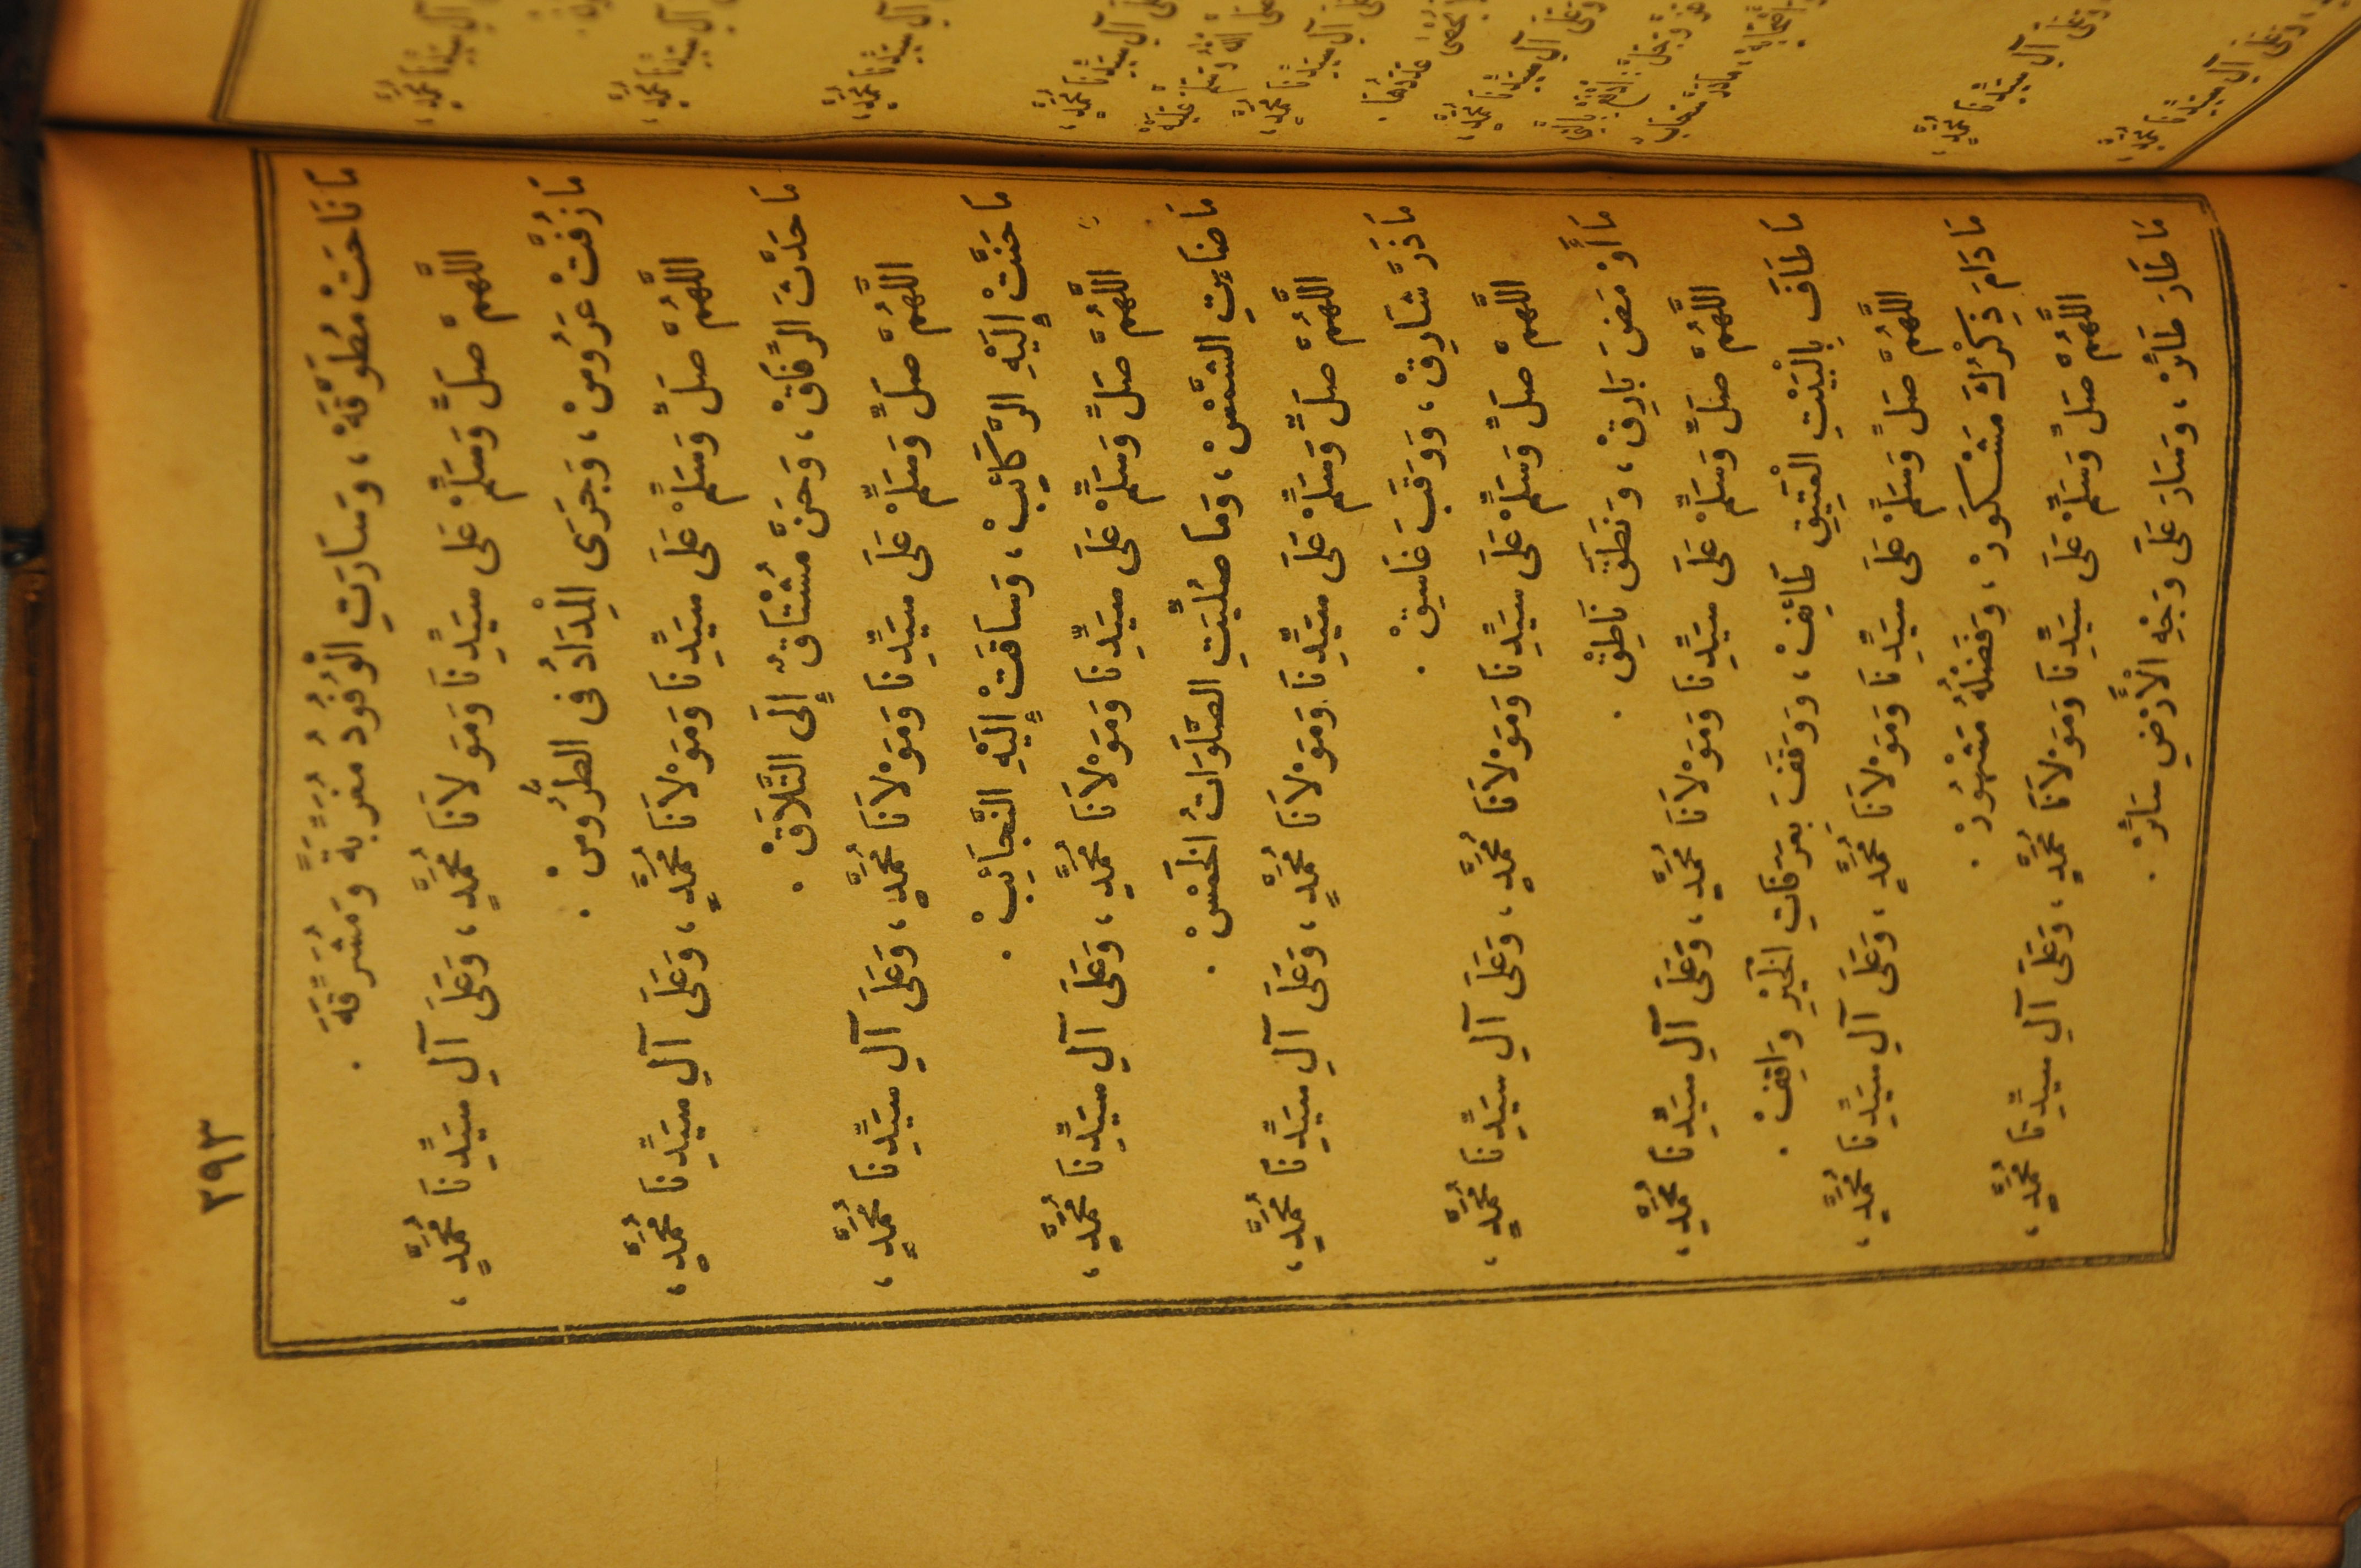 ٢٩٣
مَا نَاحَتْ مُطَوَّقَهْ ، وَسَارَتِ الْوُفُودُ مُغَرِّبَةً وَمُشَرِّقَهَ .
اللَّهُمَّ صَلِّ وَسَلِّمْ عَلَى سَيِّدِنَا وَمَوْلاَنَا مُحَمَّدٍ ، وَعَلَى آلِ سَيِّدِنَا مُحَمَّدٍ ،
مَا زُفَّتْ عَرُوسْ ، وَجَرَى الْمِدَادُ فِى الطُّرُوسْ .
اللَّهُمَّ صَلِّ وَسَلِّمْ عَلَى سَيِّدِنَا وَمَوْلاَنَا مُحَمَّدٍ ، وَعَلَى آلِ سَيِّدِنَا مُحَمَّدٍ ،
مَا حَدَّثَ الرِّفَاقْ ، وَحَنَّ مُشْتَاقٌ إِلَى التَّلاَقْ .
اللَّهُمَّ صَلِّ وَسَلِّمْ عَلَى سَيِّدِنَا وَمَوْلاَنَا مُحَمَّدٍ ، وَعَلَى آلِ سَيِّدِنَا مُحَمَّدٍ ،
مَا حَنَّتْ إِلَيْهِ الرَّكَائِبْ ، وَسَاقَتْ إِلَيْهِ النَّجَائِبْ .
اللَّهُمَّ صَلِّ وَسَلِّمْ عَلَى سَيِّدِنَا وَمَوْلاَنَا مُحَمَّدٍ ، وَعَلَى آلِ سَيِّدِنَا مُحَمَّدٍ ،
مَا ضَاءَتِ الشَّمْسْ ، وَمَا صُلِّيَتِ الصَّلَوَاتُ الْخَمْسْ .
اللَّهُمَّ صَلِّ وَسَلِّمْ عَلَى سَيِّدِنَا وَمَوْلاَنَا مُحَمَّدٍ ، وَعَلَى آلِ سَيِّدِنَا مُحَمَّدٍ ،
مَا ذَرَّ شَارِقْ ، وَوَقَبَ غَاسِقْ .
اللَّهُمَّ صَلِّ وَسَلِّمْ عَلَى سَيِّدِنَا وَمَوْلاَنَا مُحَمَّدٍ ، وَعَلَى آلِ سَيِّدِنَا مُحَمَّدٍ ،
مَا أَوْمَضَ بَارِقْ ، وَنَطَقَ نَاطِقْ .
اللَّهُمَّ صَلِّ وَسَلِّمْ عَلَى سَيِّدِنَا وَمَوْلاَنَا مُحَمَّدٍ ، وَعَلَى آلِ سَيِّدِنَا مُحَمَّدٍ ،
مَا طَافَ بِالْبَيْتِ الْعَتِيقِ طَائِفْ ، وَوَقَفَ بَعَرَفَاتِ الْخَيْرِ وَاقِفْ .
اللَّهُمَّ صَلِّ وَسَلِّمْ عَلَى سَيِّدِنَا وَمَوْلاَنَا مُحَمَّدٍ ، وَعَلَى آلِ سَيِّدِنَا مُحَمَّدٍ ،
مَا دَامَ ذِكْرُكَ مَشْكُورْ ، وَفَضْلُهُ مَشْهُورْ .
اللَّهُمَّ صَلِّ وَسَلِّمْ عَلَى سَيِّدِنَا وَمَوْلاَنَا مُحَمَّدٍ ، وَعَلَى آلِ سَيِّدِنَا مُحَمَّدٍ ،
مَا طَارَ طَائِرْ ، وَسَارَ عَلَى وَجْهِ الأَرْضِ سَائِرْ .